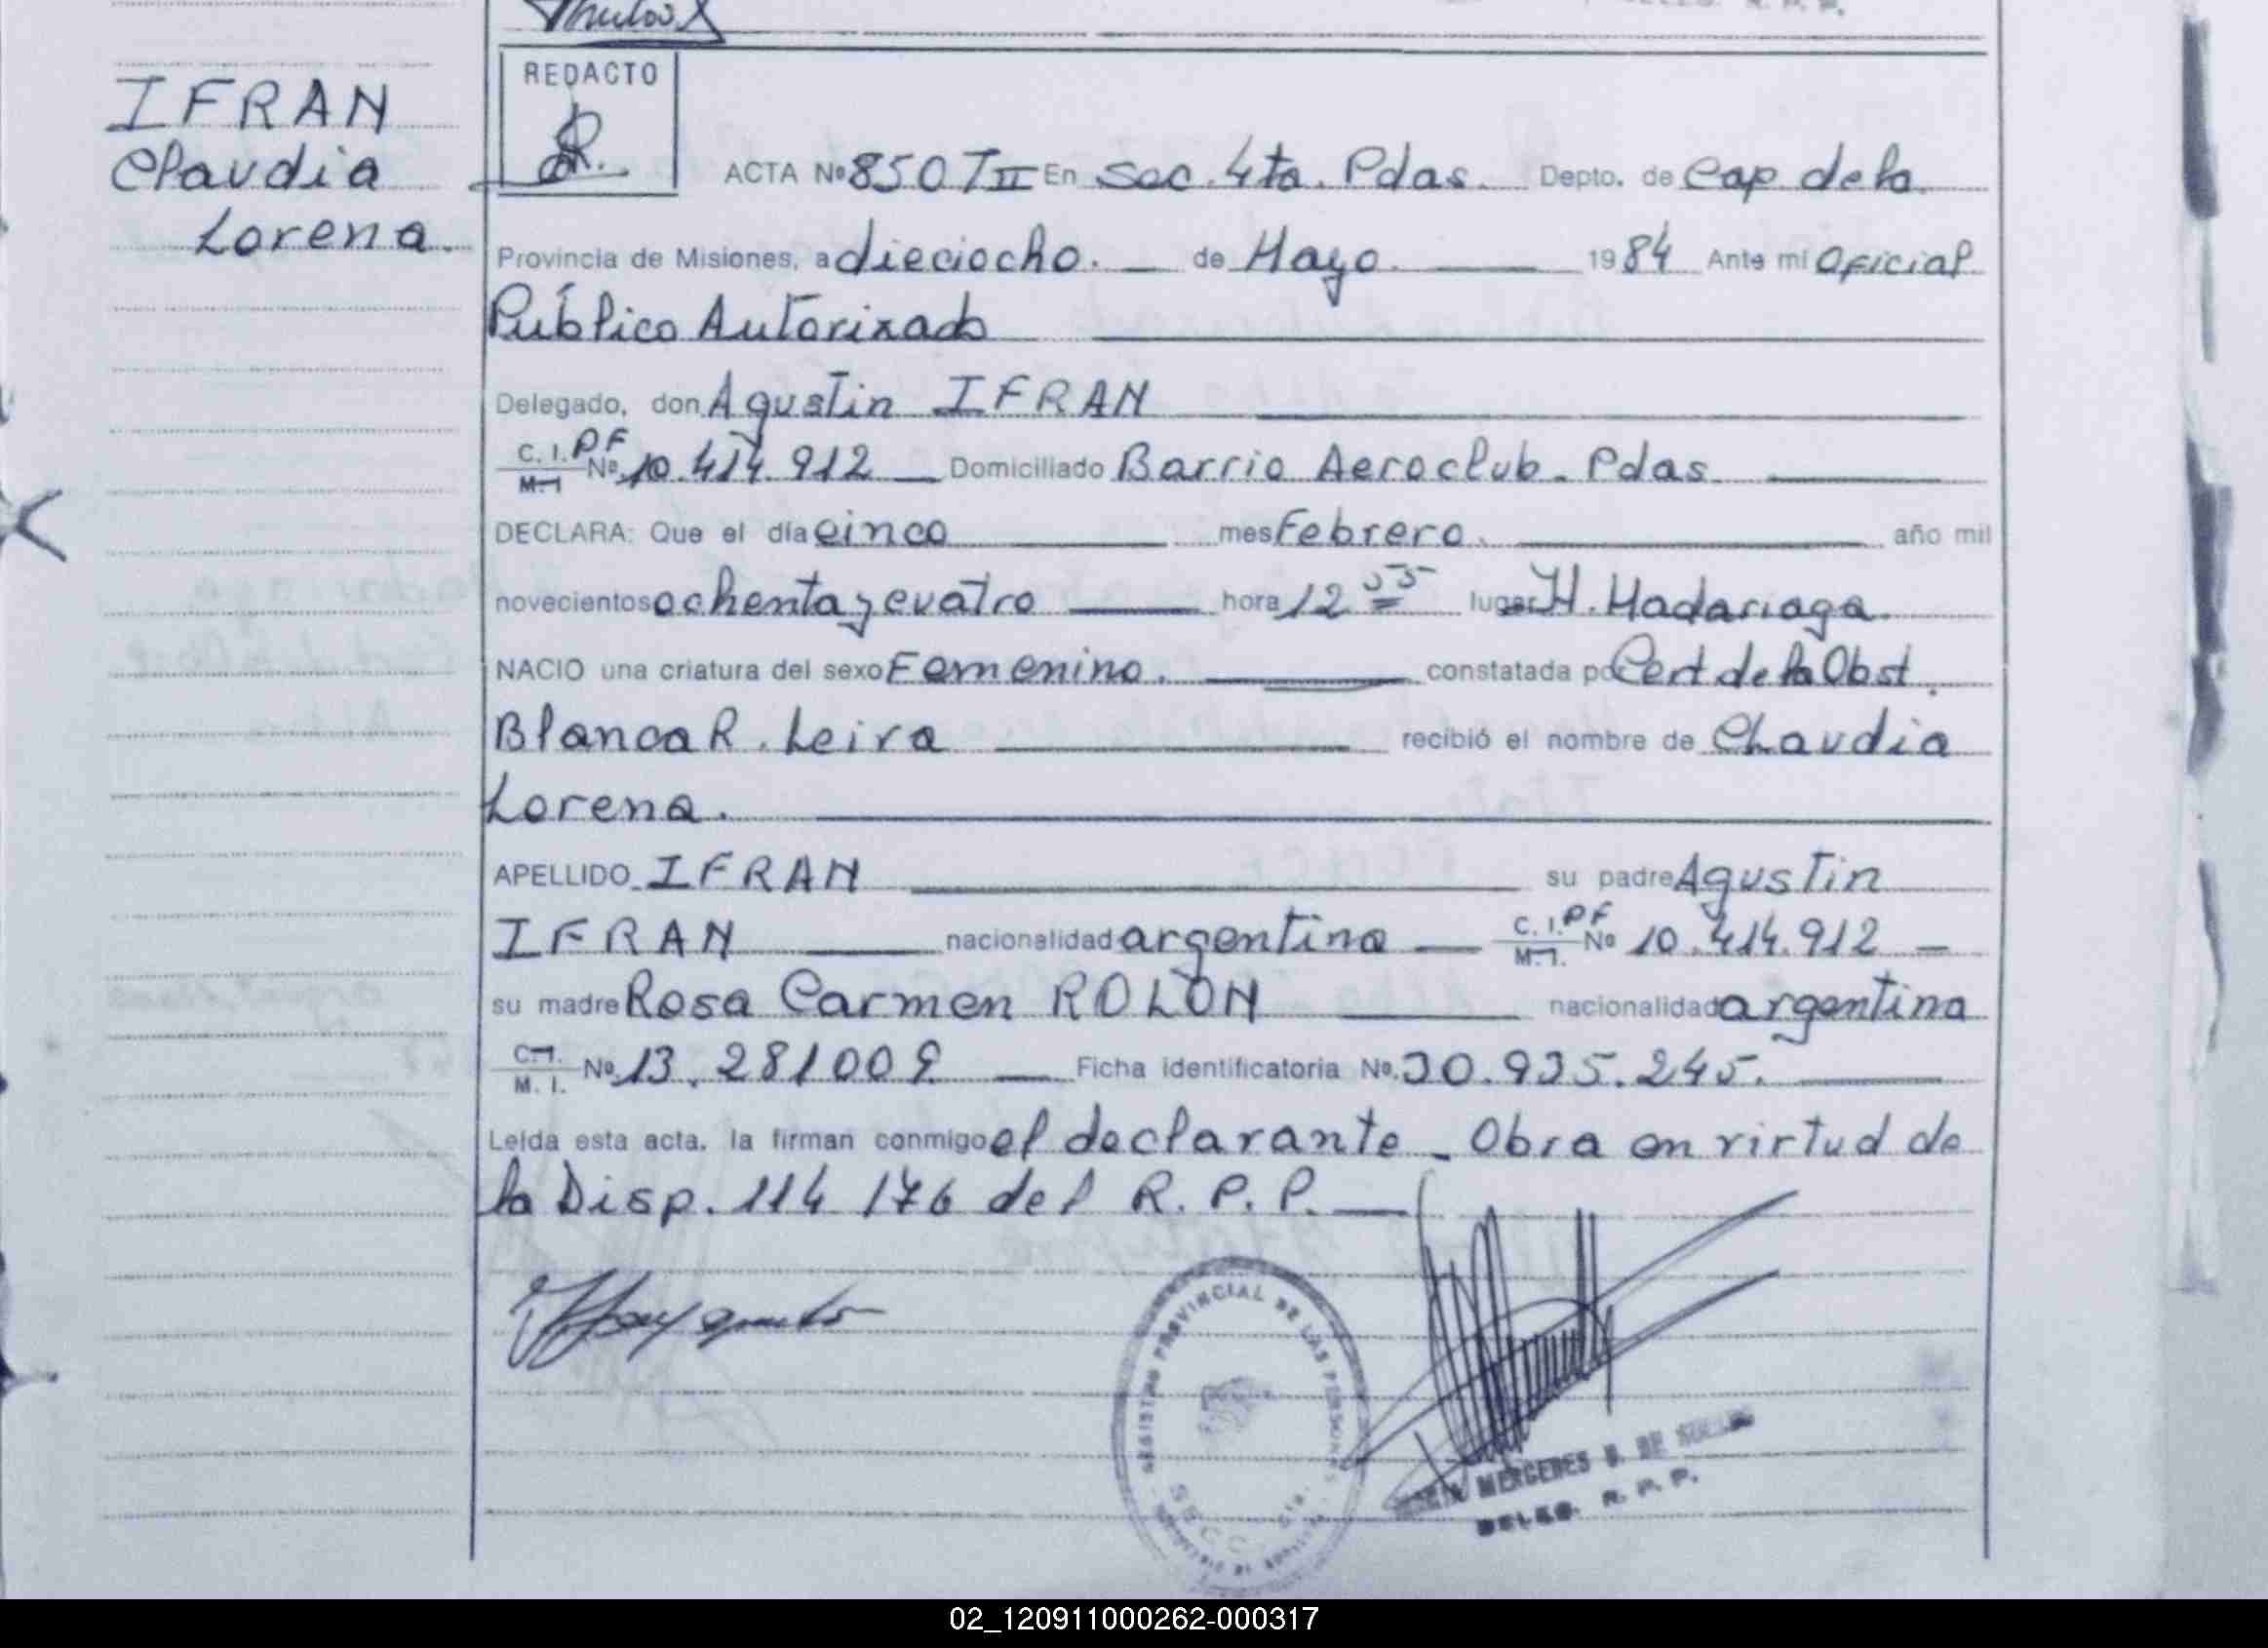 R. P. P.
IFRAN
Claudia
Lorena.
REDACTO
ACTA Nº 850 TII En Sec. 4ta. Pdas. Depto. de Cap de la
Provincia de Misiones, a dieciocho. de Mayo. 1984 Ante mí Oficial
Público Autorizado
Delegado, don Agustin IFRAN
C. I. PF
M. I. Nº 10.414.912 Domiciliado Barrio Aeroclub. Pdas.
DECLARA: Que el día cinco mes Febrero. año mil
novecientos ochenta y cuatro hora 12 55 lugar H. Madariaga.
NACIO una criatura del sexo Femenino. constatada por Cert de la Obst.
Blanca R. Leiva recibió el nombre de Claudia
Lorena.
APELLIDO IFRAN su padre Agustin
IFRAN nacionalidad argentina C. I. PF M. I. Nº 10.414.912
su madre Rosa Carmen ROLON nacionalidad argentina
C. I.
M. I. Nº 13.281009 Ficha identificatoria Nº 30.935.245.
Leída esta acta, la firman conmigo el declarante - Obra en virtud de
la Disp. 114/76 del R. P. P.
REGISTRO PROVINCIAL DE LAS PERSONAS
SECC. 4ta.
MERCEDES B. DE
DELEG. R. P. P.
02_120911000262-000317